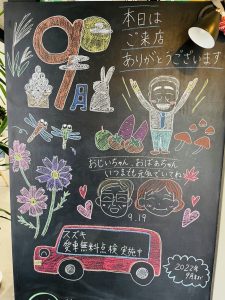 9月
本日は
ご来店
ありがとうございます
おじいちゃん、おばあちゃん
いつまでも元気でいてね
9.19
スズキ
愛車無料点検 実施中
2022年
9月まで